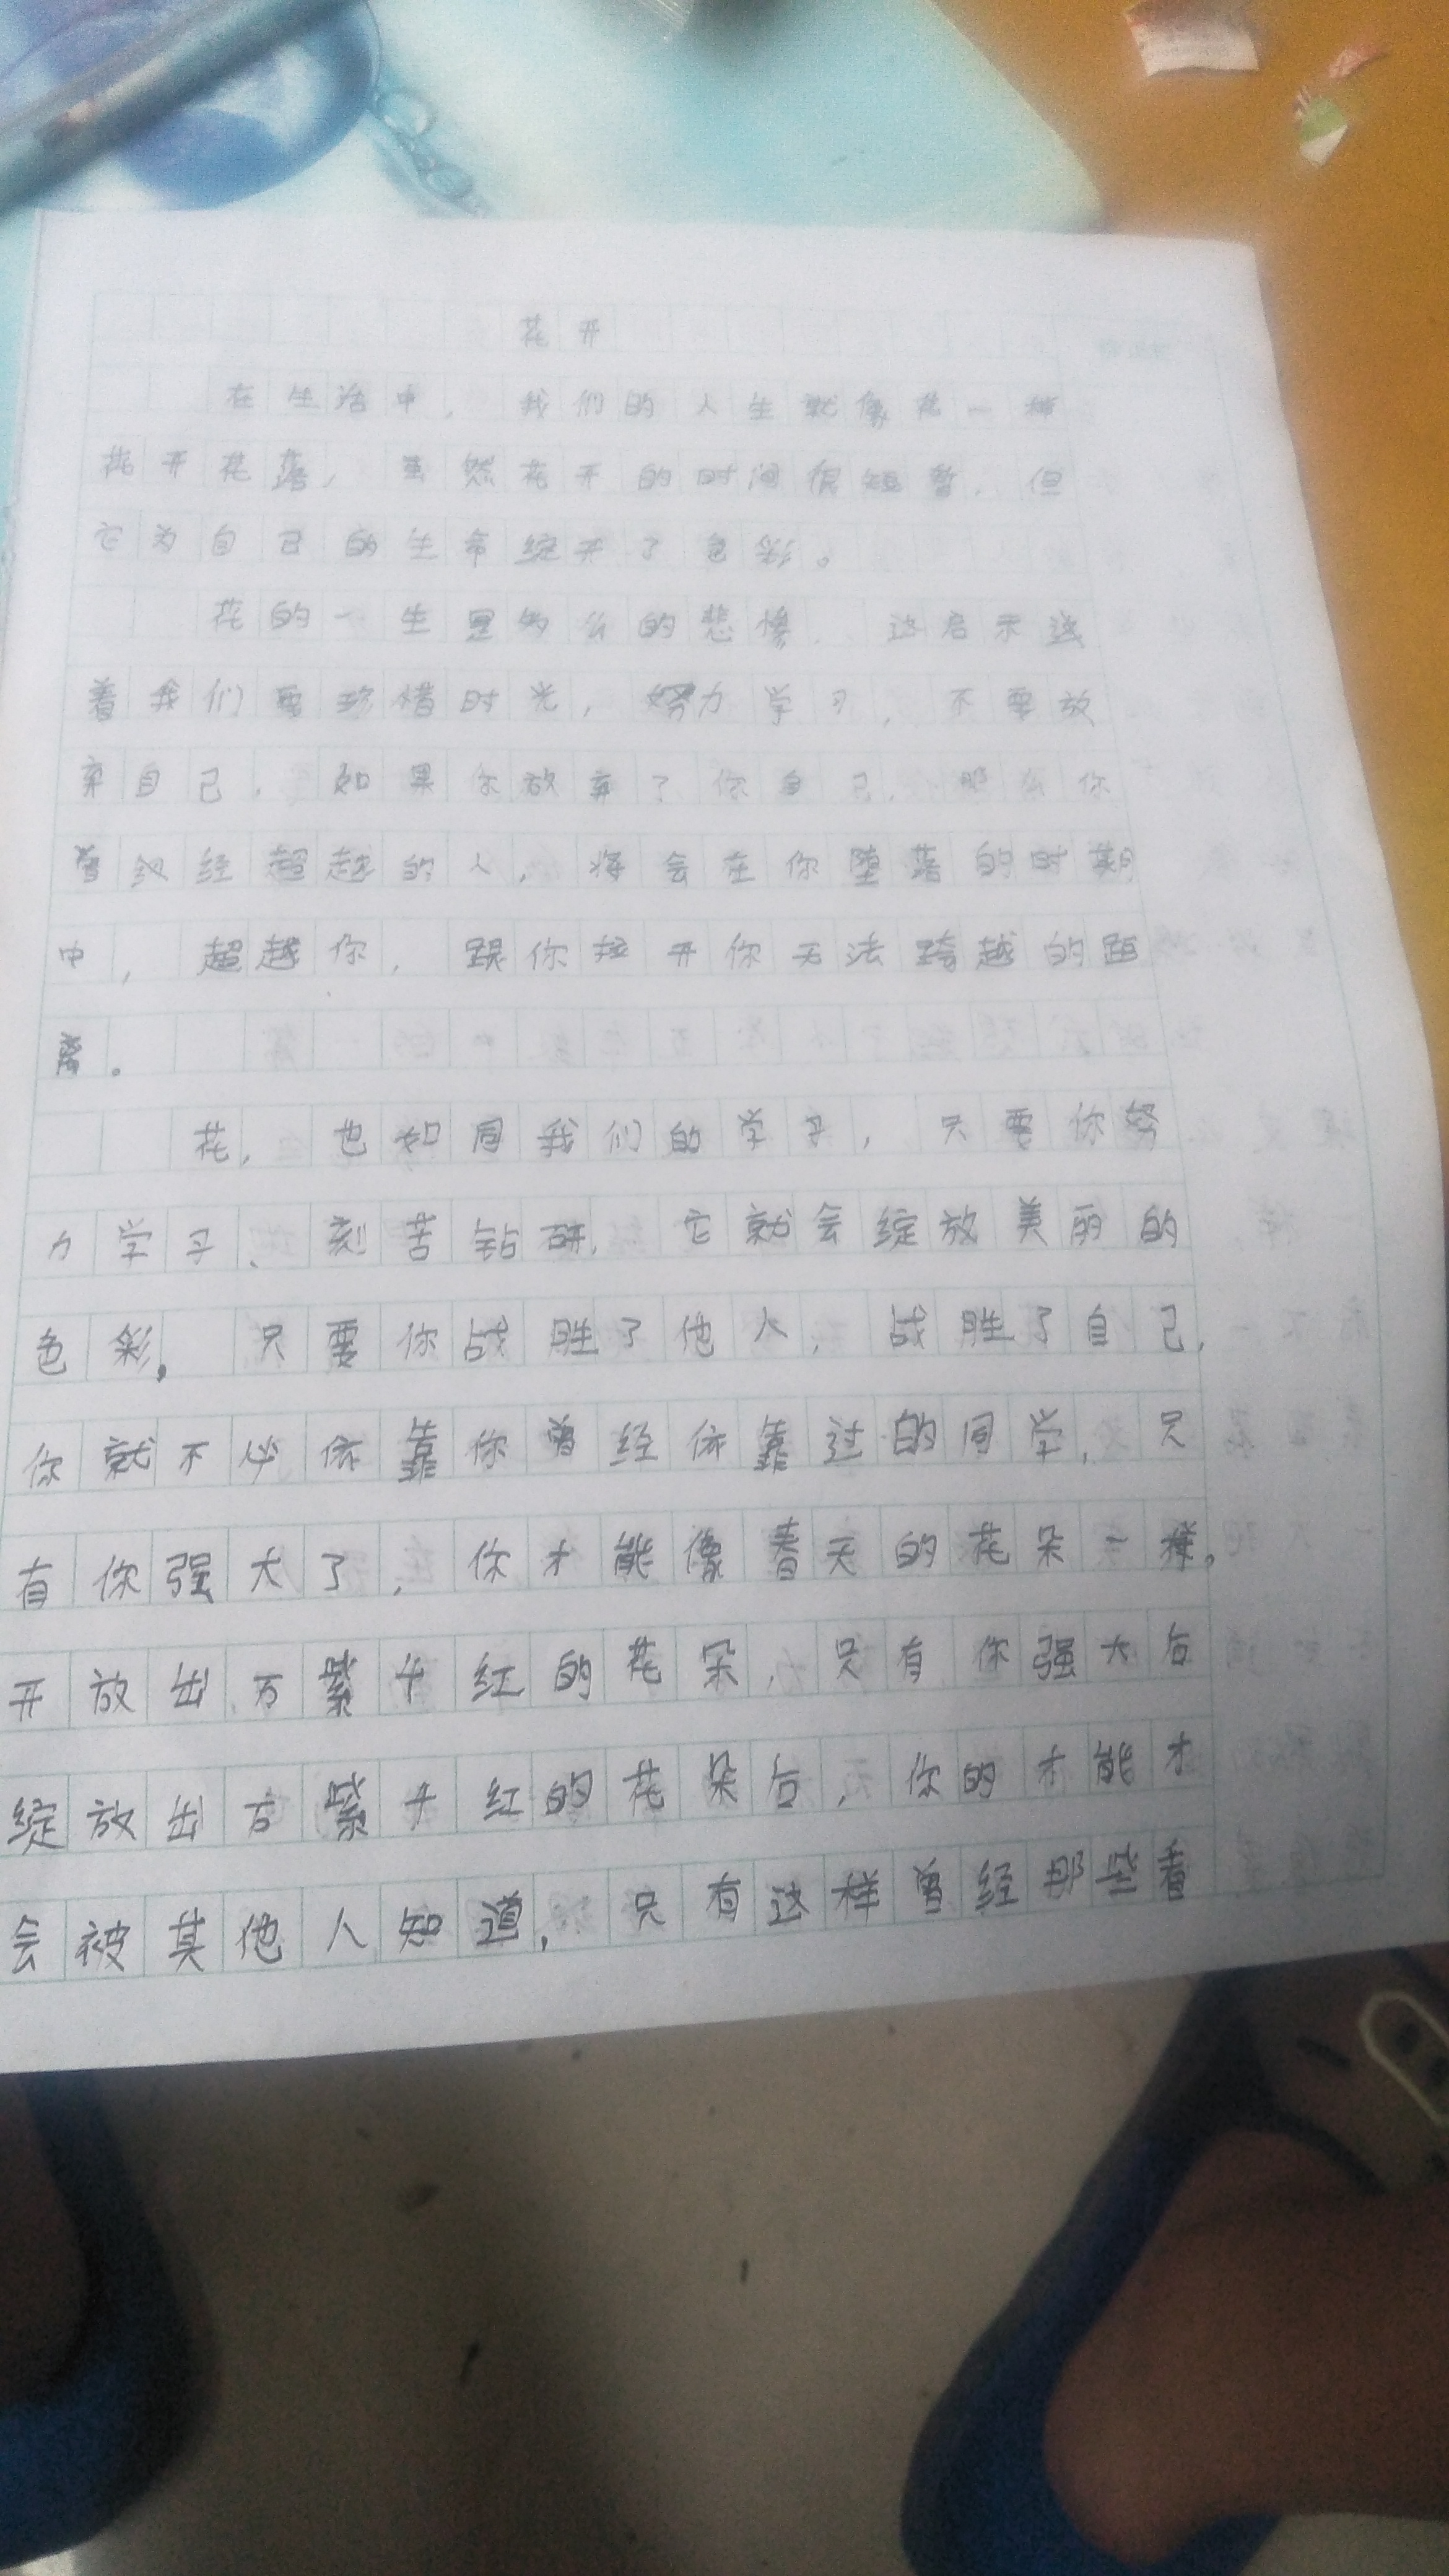 花开
在生活中，我们的人生就像花一样
花开花落，虽然花开的时间很短暂，但
它为自己的生命绽开了色彩。
花的一生是多么的悲惨，这启示送
着我们要珍惜时光，努力学习，不要放
弃自己，如果你放弃了你自己，那么你
曾经超越的人，将会在你堕落的时期
中，超越你，跟你拉开你无法跨越的距
离。
花，也如同我们的学习，只要你努
力学习、刻苦钻研，它就会绽放美丽的
色彩，只要你战胜了他人，战胜了自己，
你就不必依靠你曾经依靠过的同学，只
有你强大了，你才能像春天的花朵一样。
开放出万紫千红的花朵，只有你强大后
绽放出万紫千红的花朵后，你的才能才
会被其他人知道，只有这样曾经那些看